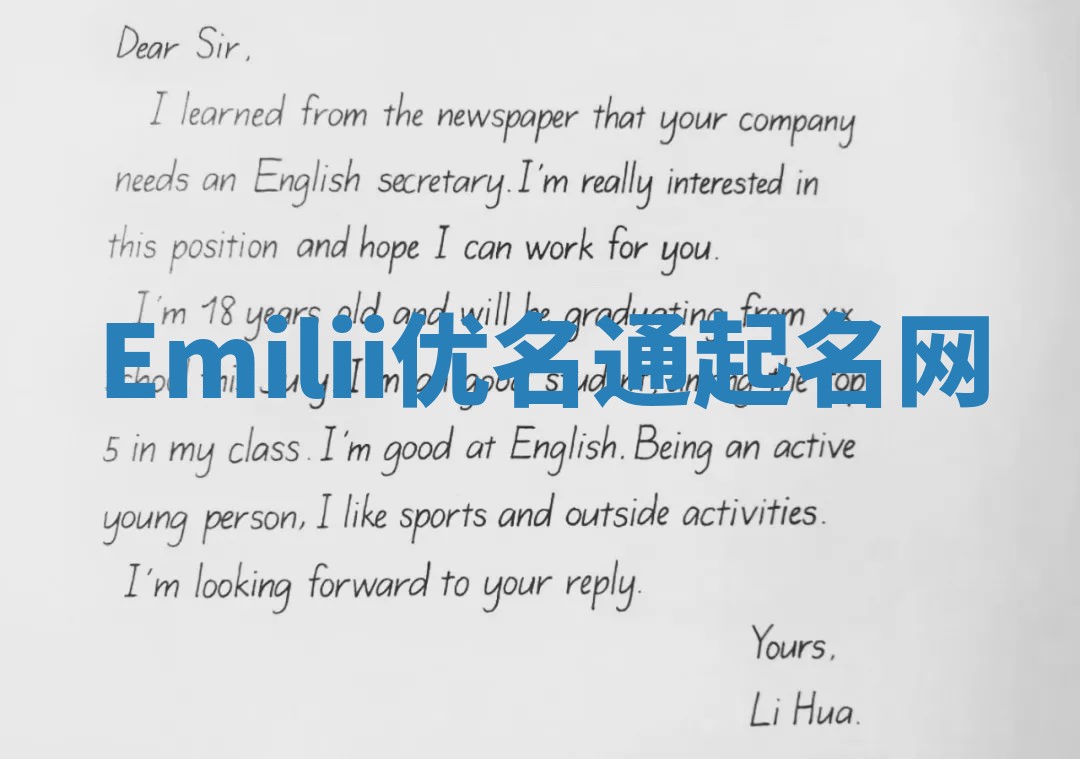 Dear Sir,
I learned from the newspaper that your company
needs an English secretary. I'm really interested in
this position and hope I can work for you.
I'm 18 years old and will be graduating from xx
Emilii优名通起名网
school this July. I'm a good student, among the top
5 in my class. I'm good at English. Being an active
young person, I like sports and outside activities.
I'm looking forward to your reply.
Yours,
Li Hua.